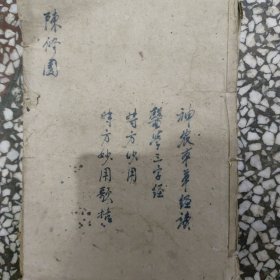 神農本草经讀
醫学三字经
時方妙用
時方妙用歌括
陳修園